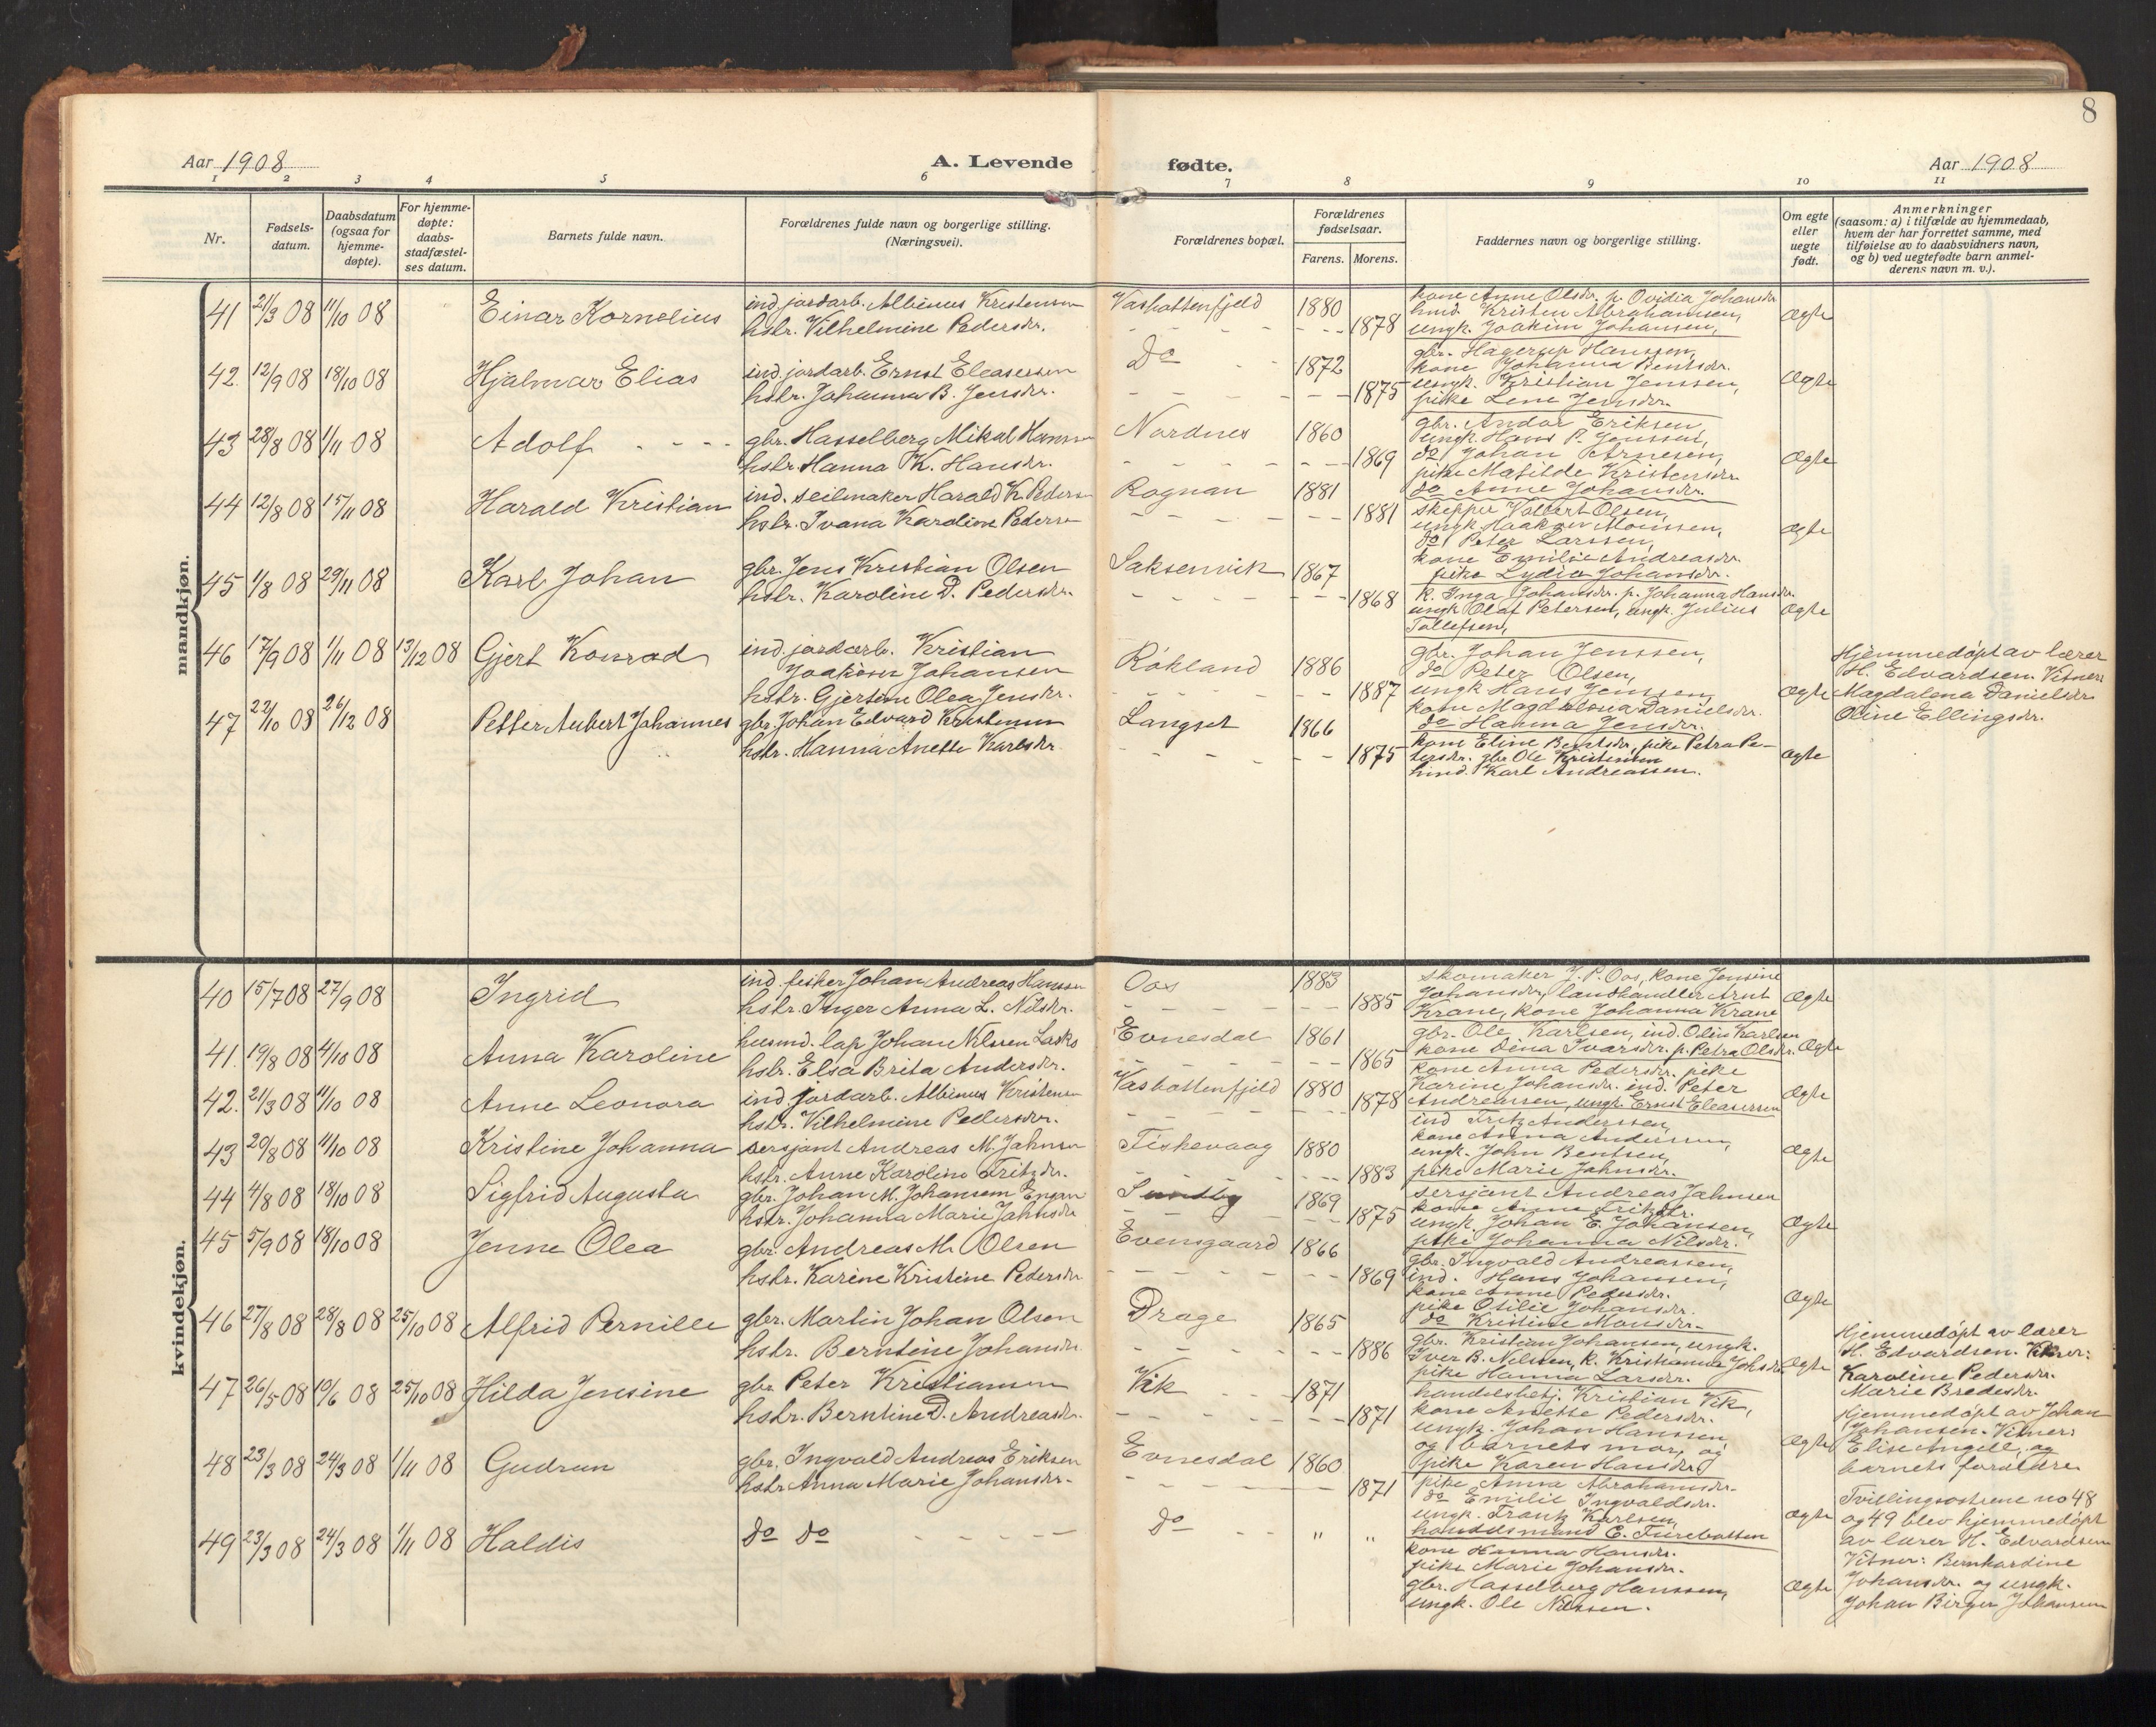 8
Aar 1908
A. Levende fødte.
Aar 1908
1 2 3 4 5 6 7 8 9 10 11
Nr.
Fødsels-
datum.
Daabsdatum
(ogsaa for
hjemme-
døpte).
For hjemme-
døpte:
daabs-
stadfæstel-
ses datum.
Barnets fulde navn.
Forældrenes fulde navn og borgerlige stilling.
(Næringsvei).
Forældrenes bopæl.
Forældrenes
fødselsaar.
Farens. Morens.
Faddernes navn og borgerlige stilling.
Om egte
eller
uegte
født.
Anmerkninger
(saasom: a) i tilfælde av hjemmedaab,
hvem der har forrettet samme, med
tilføielse av to daabsvidners navn,
og b) ved uegtefødte barn anmel-
derens navn m. v.).
mandkjøn.
41 21/3 08 11/10 08 Einar Kornelius
ind. jordarb. Albinus Kristensen
hstr. Vilhelmine Pedersdr.
Vasbottenfjeld 1880
1878
kone Anne Olsdr. p. Ovidia Johansdr
hmd. Kristen Abrahamsen,
ungk. Joakim Johansen,
Ægte
42. 12/9 08 18/10 08 Hjalmar Elias
ind. jordarb. Ernst Eleasersen
hstr. Johanna B. Jensdr.
Do 1872
1875
gbr. Hagerup Hanssen,
kone Johanna Bentsdr.
ungk. Kristian Jenssen,
pike Lene Jensdr.
Ægte
43 28/8 08 1/11 08 Adolf
gbr. Hasselberg Mikal Hanssen
hstr. Hanna K. Hansdr.
Nordnes 1860
1869
gbr. Andor Eriksen
ungk. Hans P. Jenssen,
do Johan Arnesen,
pike Matilde Kristensdr.
do Anne Johansdr.
Ægte
44 12/8 08 15/11 08 Harald Kristian
ind. seilmaker Harald K. Pedersen
hstr. Ivana Karoline Pedersen
Rognan 1881
1881
skipper Volbert Olsen,
ungk. Haakon Monssen,
do Peter Larssen,
kone Emilie Andreasdr.
pike Lydia Johansdr.
Ægte
45 1/8 08 29/11 08 Karl Johan
gbr. Jens Kristian Olsen
hstr. Karoline D. Pedersdr.
Saksenvik 1867
1868
k. Inga Johansdr. p. Johanna Hansdr.
ungk Olaf Petersen, ungk. Julius
Tollefsen,
Ægte
46 17/9 08 1/11 08 13/12 08 Gjert Konrad
ind. jordarb. Kristian
Joakim Johansen
hstr. Gjertine Olea Jensdr.
Røkland 1886
1887
gbr. Johan Jenssen,
do Peter Olsen,
ungk Hans Jenssen,
kone Magdalena Danielsdr.
do Hanna Jensdr.
Ægte
Hjemmedøpt av lærer
H. Edvardsen. Vitner:
Magdalena Danielsdr.
Oline Ellingsdr.
47 22/10 08 26/12 08 Petter Aubert Johannes
gbr. Johan Edvard Kristensen
hstr. Hanna Anette Karlsdr
Langset 1866
1875
kone Eline Bentsdr., pike Petra Pe-
tersdr. gbr. Ole Kristensen
hmd. Karl Andreassen.
ægte
kvindekjøn.
40 15/7 08 27/9 08 Ingrid
ind. fisker Johan Andreas Hanssen
hstr. Inger Anna L. Nilsdr.
Oos 1883
1885
skomaker J. P. Oos, kone Jensine
Johansdr., landhandler Arnt
Krane, kone Johanna Krane
Ægte
41. 19/8 08 4/10 08 Anna Karoline
husmd. lap Johan Nilsen Lasko
hstr. Elsa Brita Andersdr.
Evnesdal 1861
1865
gbr. Ole Karlsen, ind. Olus Karlsen
kone Dina Ivarsdr. p. Petra Olsdr.
Ægte
42. 21/3 08 11/10 08 Anne Leonora
ind. jordarb. Albinus Kristensen
hstr. Vilhelmine Pedersdr.
Vasbottenfjeld 1880
1878
kone Anna Pedersdr. pike
Karine Johansdr. ind. Peter
Andreassen, ungk. Ernst Eleasersen
Ægte
43 29/8 08 11/10 08 Kristine Johanna
sersjant Andreas M. Jahnsen
hstr. Anne Karoline Fritzdr.
Fiskevaag 1880
1883
ind Fritz Anderssen,
kone Anna Anderssen,
ungk. John Bentsen,
pike Marie Jahnsdr.
Ægte
44 4/8 08 18/10 08 Sigfrid Augusta
gbr. Johan M. Johansen Engan
hstr. Johanna Marie Jahnsdr
Sundby 1869
1875
sersjant Andreas Jahnsen
kone Anne Fritzdr.
ungk. Johan E. Johansen,
pike Johanna Nilsdr.
Ægte
45 5/9 08 18/10 08 Jenne Olea
gbr. Andreas M. Olsen
hstr. Karine Kristine Pedersdr
Evensgaard 1866
1869
gbr. Ingvald Andreassen,
ind. Hans Johansen,
kone Anne Pedersdr.
pike Otilie Johansdr.
do Kristine Monsdr.
Ægte
46 27/8 08 28/8 08 25/10 08 Alfrid Pernille
gbr. Martin Johan Olsen
hstr. Berntine Johansdr
Drage 1865
1886
gbr. Kristian Johansen, ungk.
Iver B. Nilssen, k. Kristianna Johsdr.
pike Hanna Larsdr.
Ægte
Hjemmedøpt av lærer
H. Edvardsen. Vitner:
Karoline Pedersdr.
Marie Bredesdr.
47 26/5 08 19/6 08 25/10 08 Hilda Jensine
gbr. Peter Kristiansen
hstr. Berntine D. Andreasdr.
Vik 1871
1871
handelsbetj. Kristian Vik,
kone Anette Pedersdr.
ungk. Johan Hanssen
og barnets mor, og
pike Karen Hansdr.
Ægte
Hjemmedøpt av Johan
Johansen. Vitner:
Elise Angell, og
barnets forældre
48 23/3 08 24/3 08 1/11 08 Gudrun
gbr. Ingvald Andreas Eriksen
hstr. Anna Marie Johansdr.
Evnesdal 1860
1871
pike Anna Abrahamsdr.
do Emilie Ingvaldsdr.
ungk. Frantz Karlsen,
handelsmand C. Turebotten
Ægte
Tvillingsøstrene no 48
og 49 blev hjemmedøpt
av lærer H. Edvardsen
Vitner: Bernhardine
Johansdr. og ungk.
Johan Birger Johansen
49 23/3 08 24/3 08 1/11 08 Haldis
do do
do " "
kone Hanna Hansdr.
pike Marie Johansdr.
gbr. Hasselberg Hanssen,
ungk. Ole Nilssen.
Ægte